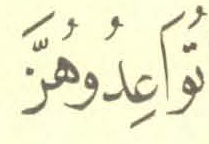 تُوَاعِدُوهُنَّ